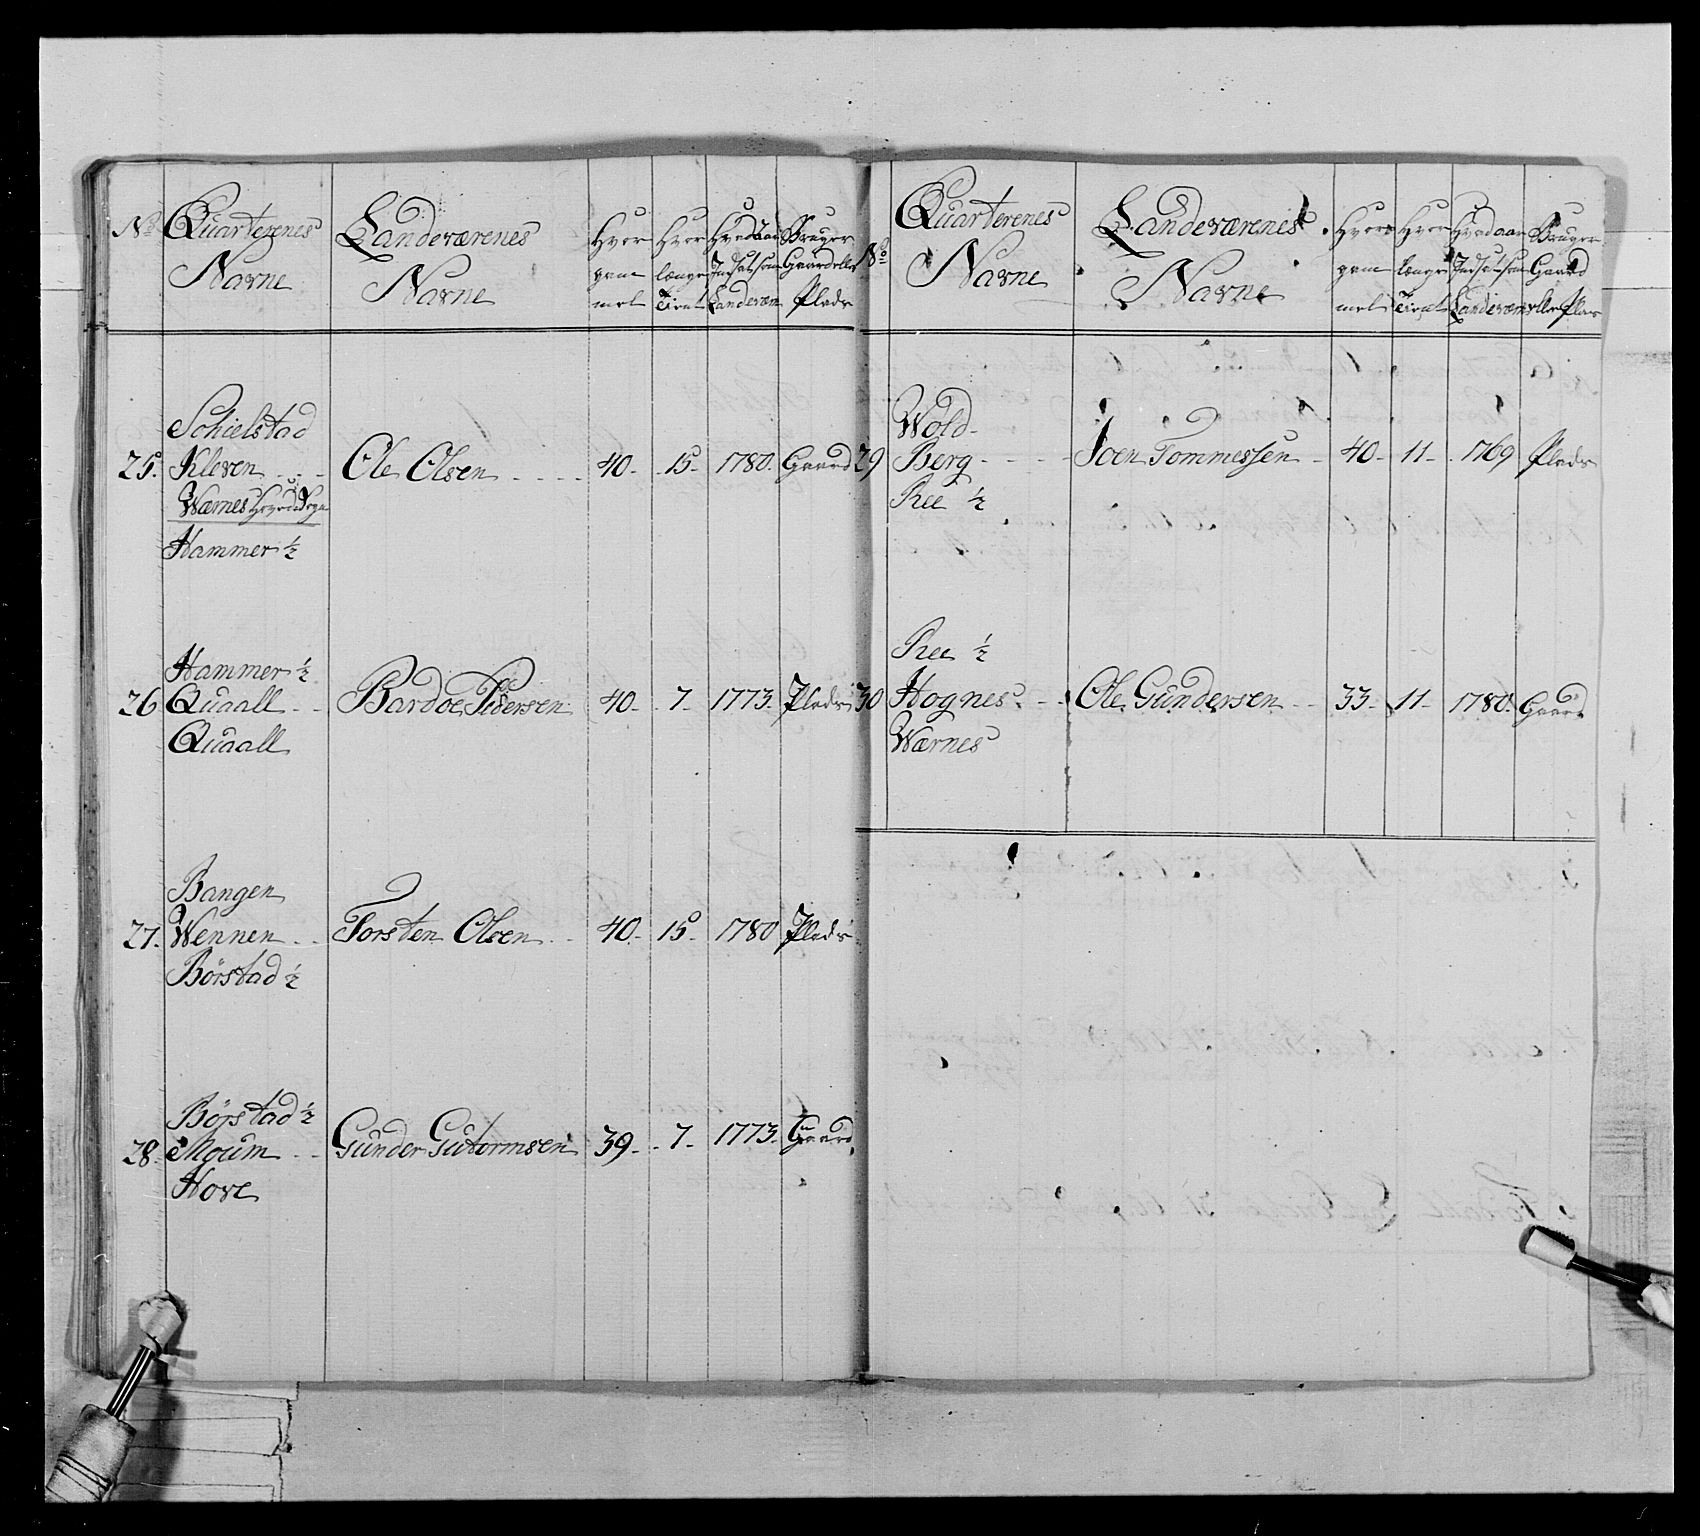 No
Quarterenes
Navne
Landeværenes
Navne
Hvor
gam
mel
Hvor
længe
Tient
Hvad aar
Indsat som
Landeværn
Bruger
Gaard eller
Plads
Schielstad
25. Kleven Ole Olsen 40. 15. 1780. Gaard
Wærnes
Hammer ½
Hammer ½
26 Quaall Bardoe Pedersen 40. 7. 1773. Plads
Quaall
Bangen
27. Wennen Torsten Olsen 40. 15. 1780 Plads
Börstad ½
Börstad ½
28. Moum Gunder Gutormsen 39. 7. 1773. Gaard
Hove
No
Quarterenes
Navne
Landeværenes
Navne
Hvor
gam
mel
Hvor
længe
Tient
Hvad aar
Indsat som
Landeværn
Bruger
Gaard
eller Plas
Wold
29 Berg Joen Tommessen 40. 11. 1769 Plads
Ree ½
Ree ½
30 Hognes Ole Gundersen 33. 11. 1780. Gaard
Wærnes